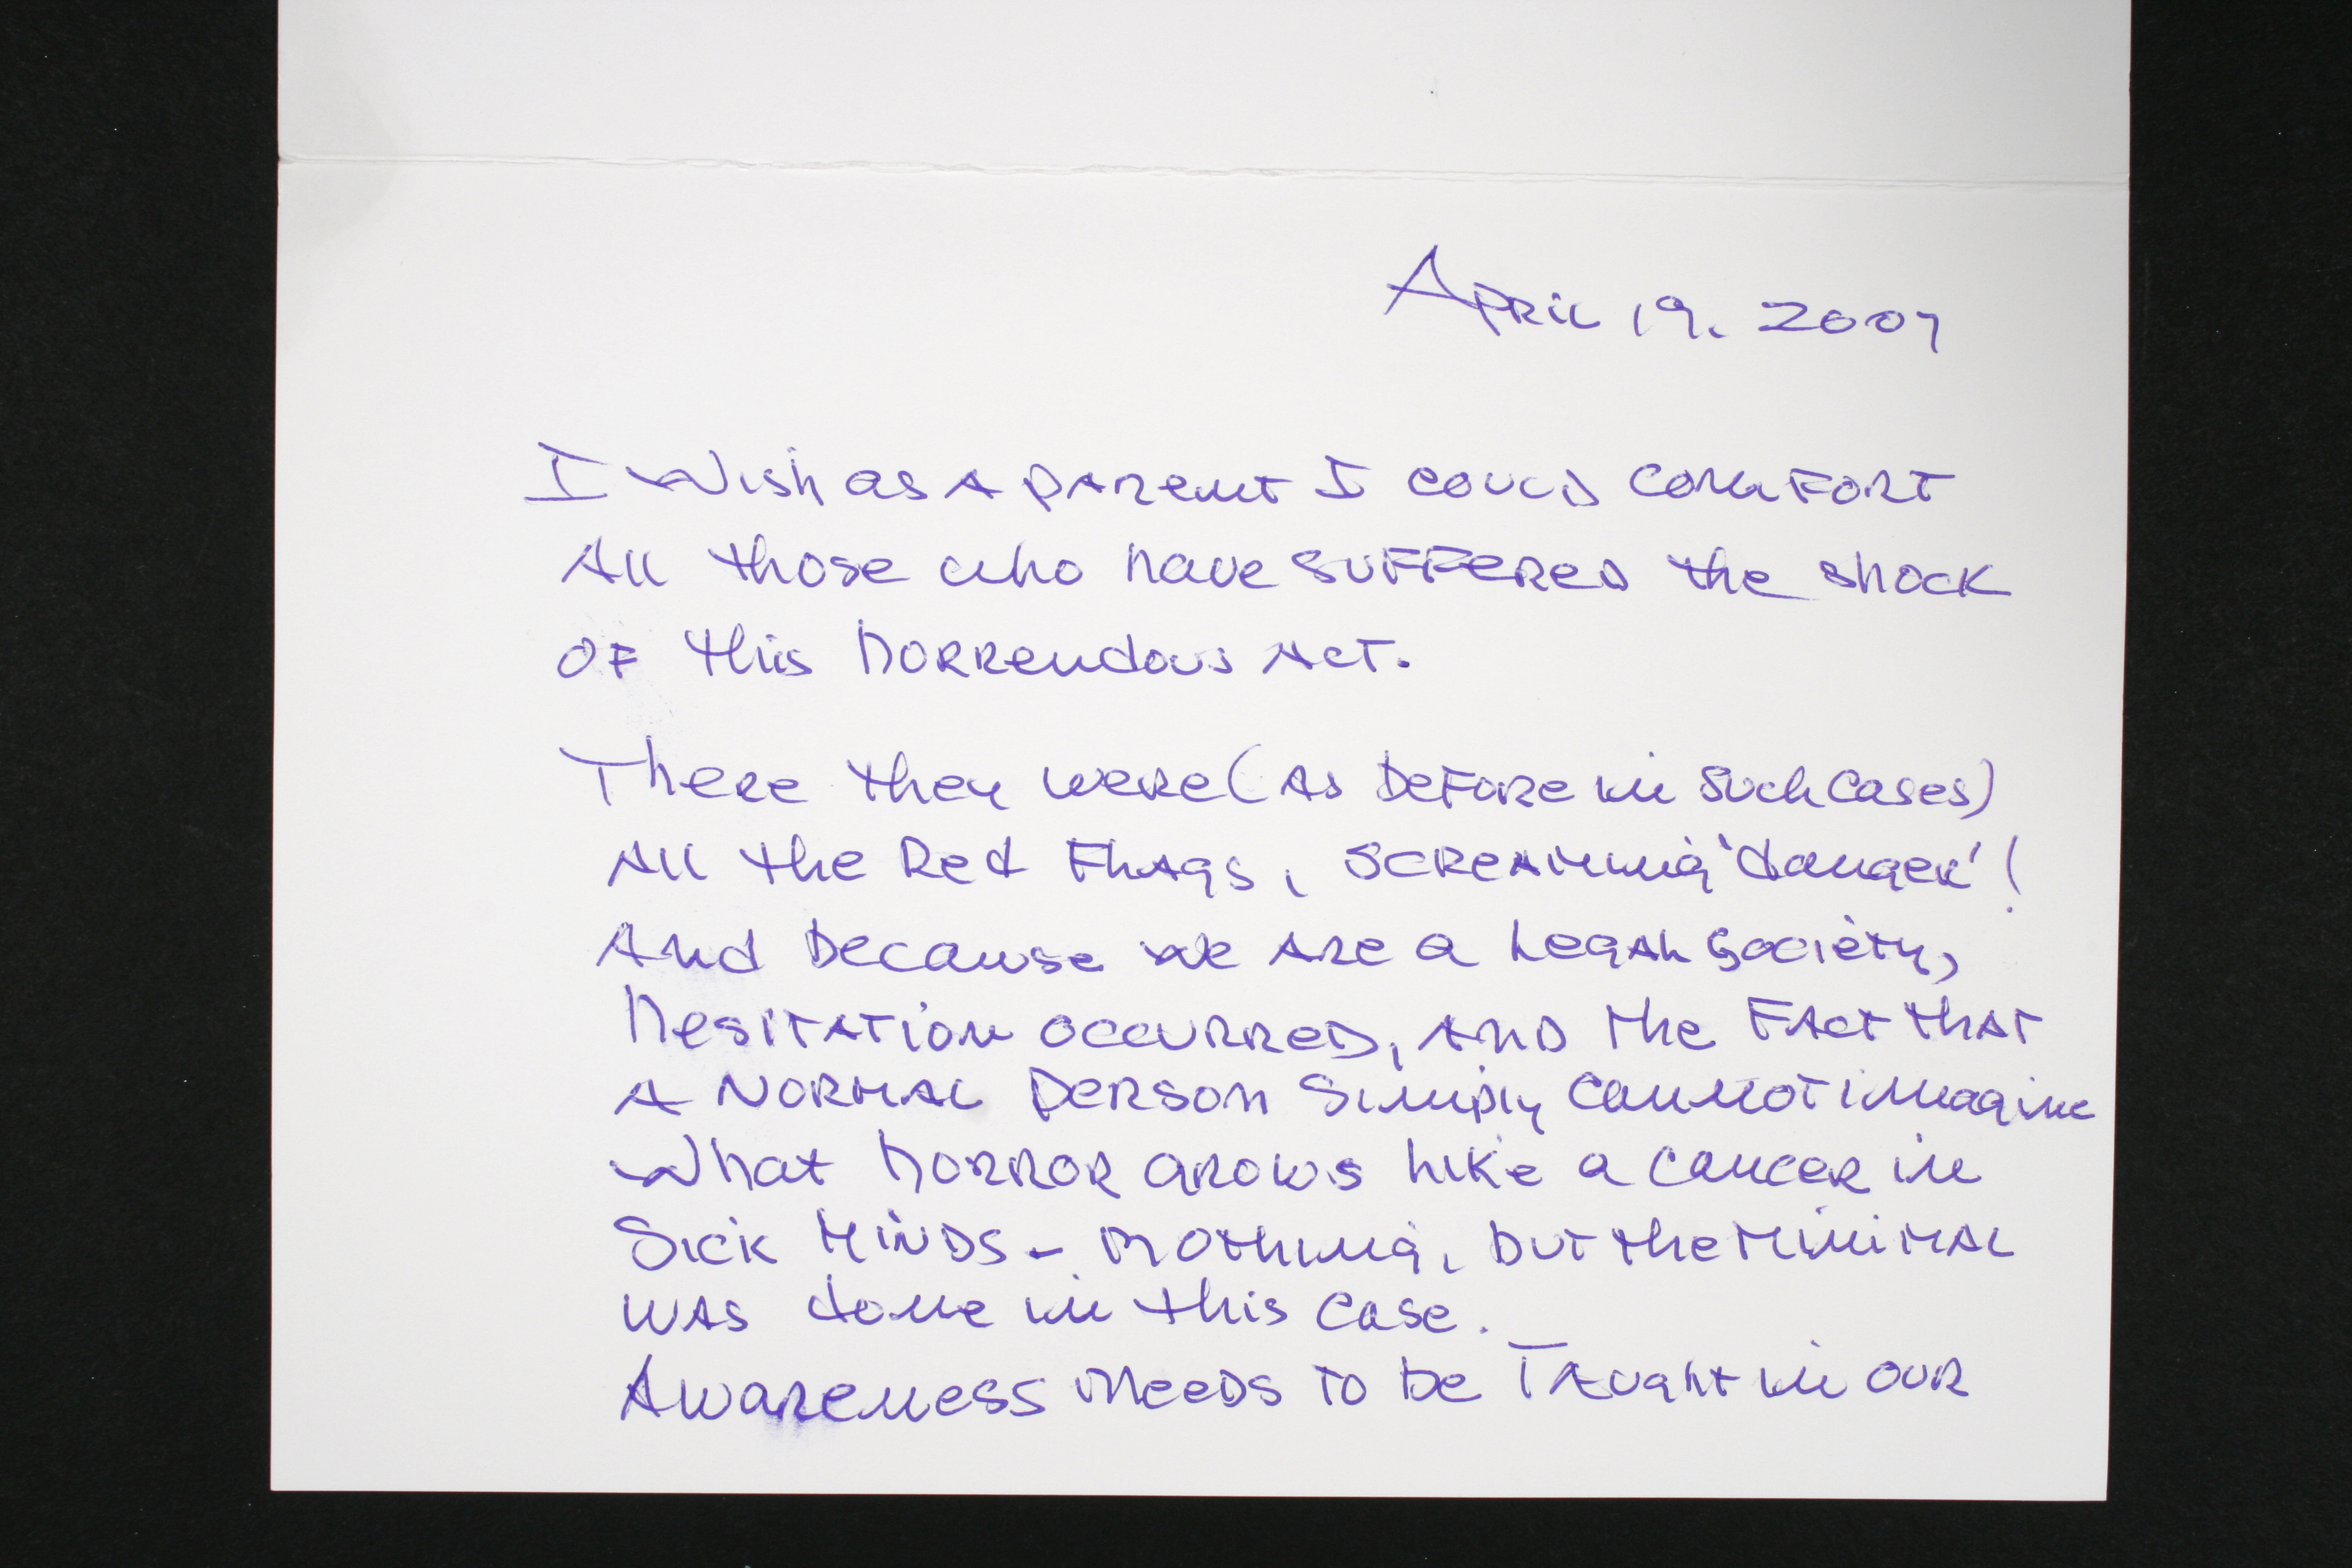 April 19. 2007
I wish as a parent I could comfort
All those who have suffered the shock
of this horrendous act.
There they were (as before in such cases)
All the Red Flags, screaming 'danger'!
And because we are a Legal Society,
hesitation occurred, and the fact that
a normal person simply cannot imagine
what horror grows like a cancer in
sick minds - nothing, but the minimal
was done in this case.
Awareness needs to be Taught in our